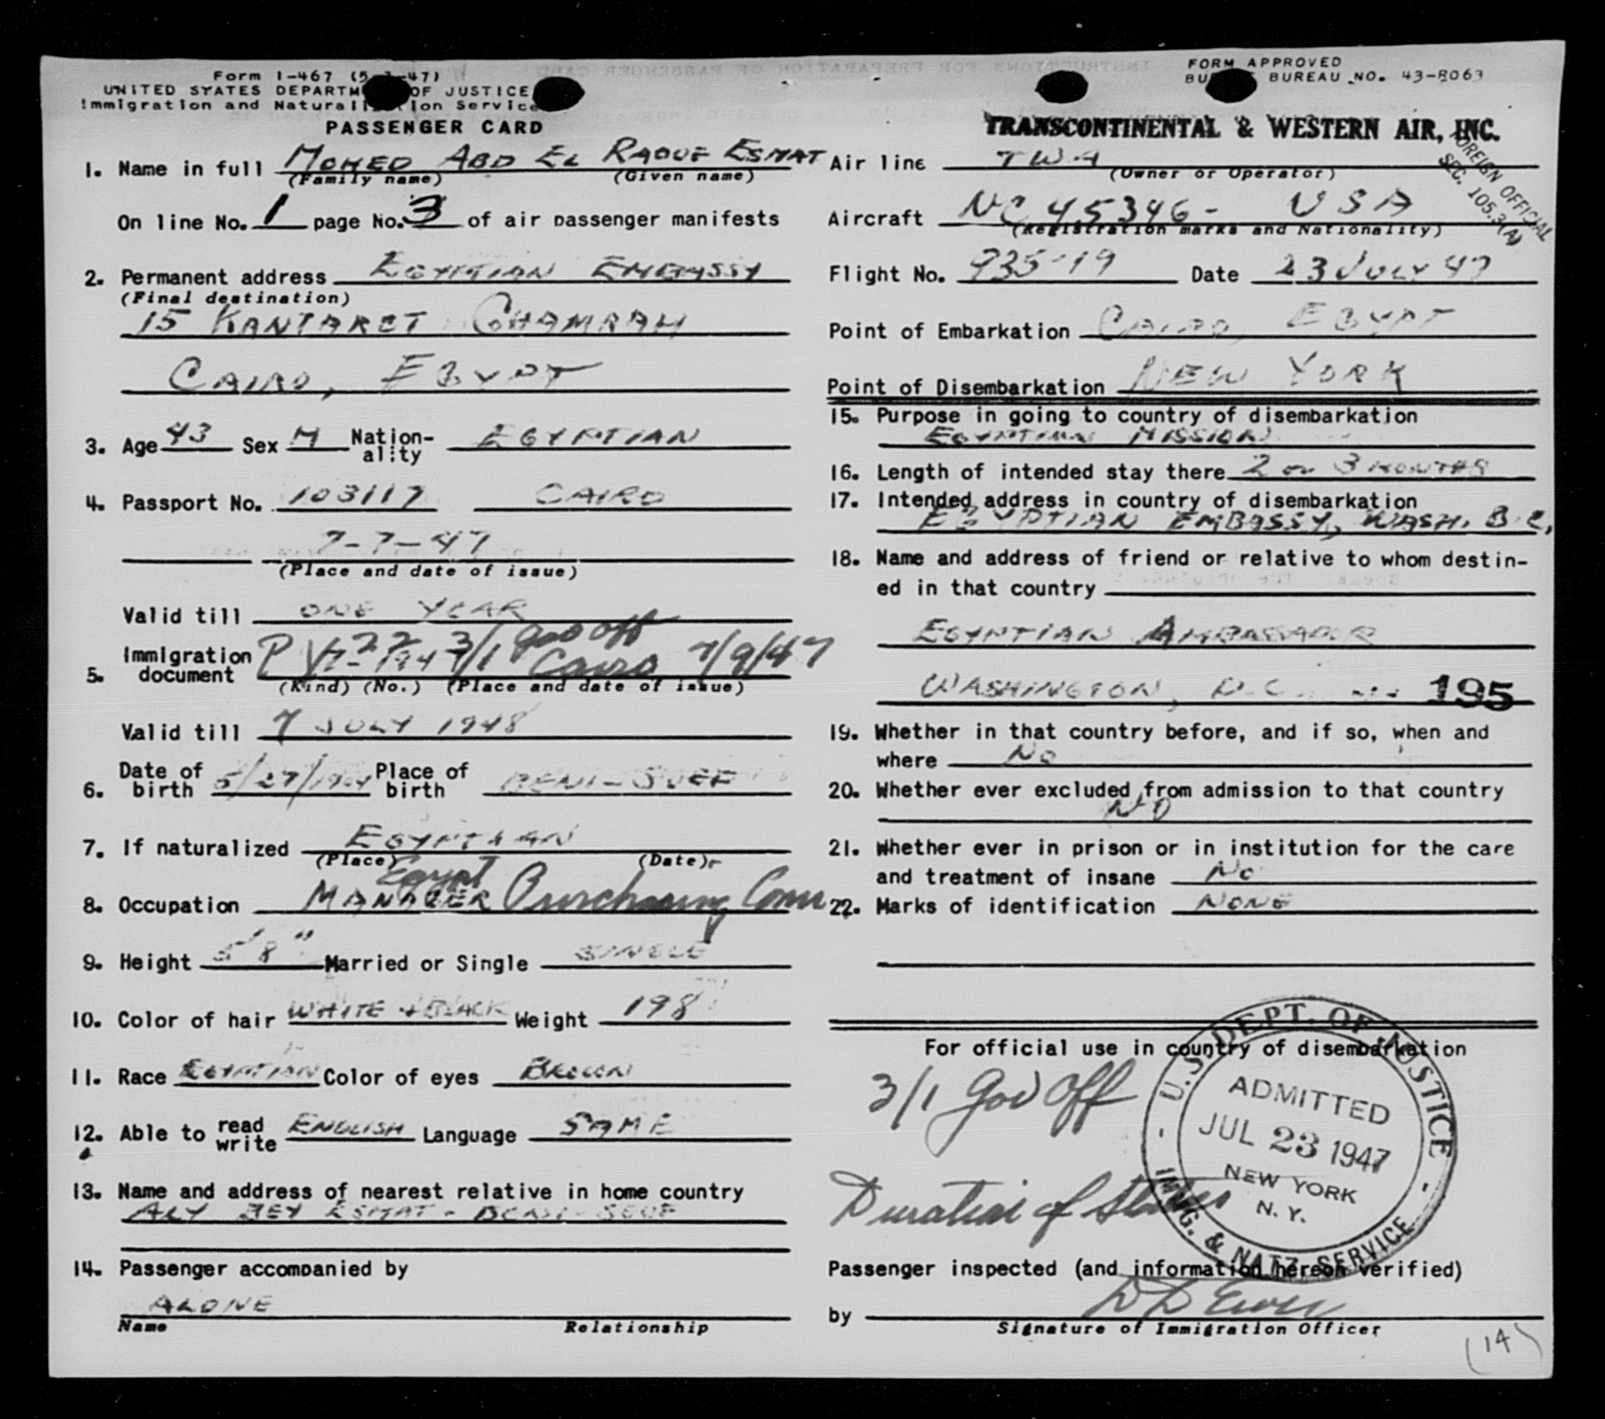 Form I-467 (5- -47)
UNITED STATES DEPARTM OF JUSTICE
Immigration and Naturali ion Service
PASSENGER CARD
1. Name in full MOHED ABD EL RAOUF ESMAT
(Family name) (Given name)
On line No. 1 page No. 3 of air passenger manifests
2. Permanent address EGYPTIAN EMBASSY
(Final destination)
15 KANTARET GHAMRAH
CAIRO, EGYPT
3. Age 43 Sex M Nation-ality EGYPTIAN
4. Passport No. 103117 CAIRO
7-7-47
(Place and date of issue)
Valid till ONE YEAR
5. Immigration document PV 3/1 gov off Cairo 7/9/47
(Kind) (No.) (Place and date of issue)
Valid till 7 JULY 1948
6. Date of birth 5/27/1904 Place of birth BENI-SUEF
7. If naturalized EGYPTIAN
(Place) (Date)
8. Occupation MANAGER Egypt Purchasing Comm
9. Height 5'8" Married or Single SINGLE
10. Color of hair WHITE + BLACK Weight 198
11. Race EGYPTIAN Color of eyes BROWN
12. Able to read write ENGLISH Language SAME
13. Name and address of nearest relative in home country
ALY BEY ESMAT -
14. Passenger accompanied by
ALONE
Name Relationship
FORM APPROVED
BU BUREAU NO. 43-R063
TRANSCONTINENTAL & WESTERN AIR, INC.
FOREIGN OFFICIAL
SEC. 105.3(A)
Air line TWA
(Owner or Operator)
Aircraft NC 45346 - USA
(Registration marks and Nationality)
Flight No. 935-19 Date 23 JULY 47
Point of Embarkation CAIRO, EGYPT
Point of Disembarkation NEW YORK
15. Purpose in going to country of disembarkation
EGYPTIAN MISSION
16. Length of intended stay there 2 or 3 MONTHS
17. Intended address in country of disembarkation
EGYPTIAN EMBASSY, WASH. D.C.
18. Name and address of friend or relative to whom destin-
ed in that country
EGYPTIAN AMBASSADOR
WASHINGTON, D.C. 195
19. Whether in that country before, and if so, when and
where No
20. Whether ever excluded from admission to that country
NO
21. Whether ever in prison or in institution for the care
and treatment of insane No
22. Marks of identification NONE
For official use in country of disembarkation
3/1 Gov Off
Duration of Status
U.S. DEPT. OF JUSTICE
ADMITTED
JUL 23 1947
NEW YORK
N. Y.
IMMIG. & NATZ. SERVICE
Passenger inspected (and information hereon verified)
by
Signature of Immigration Officer
(14)